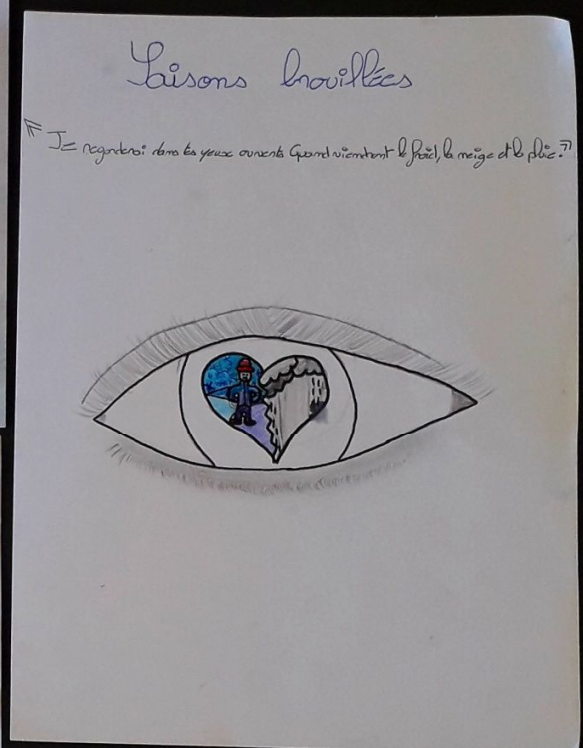 Saisons brouillées
« Je regarderai dans les yeux ouverts Quand viendront le froid, la neige et la pluie. »